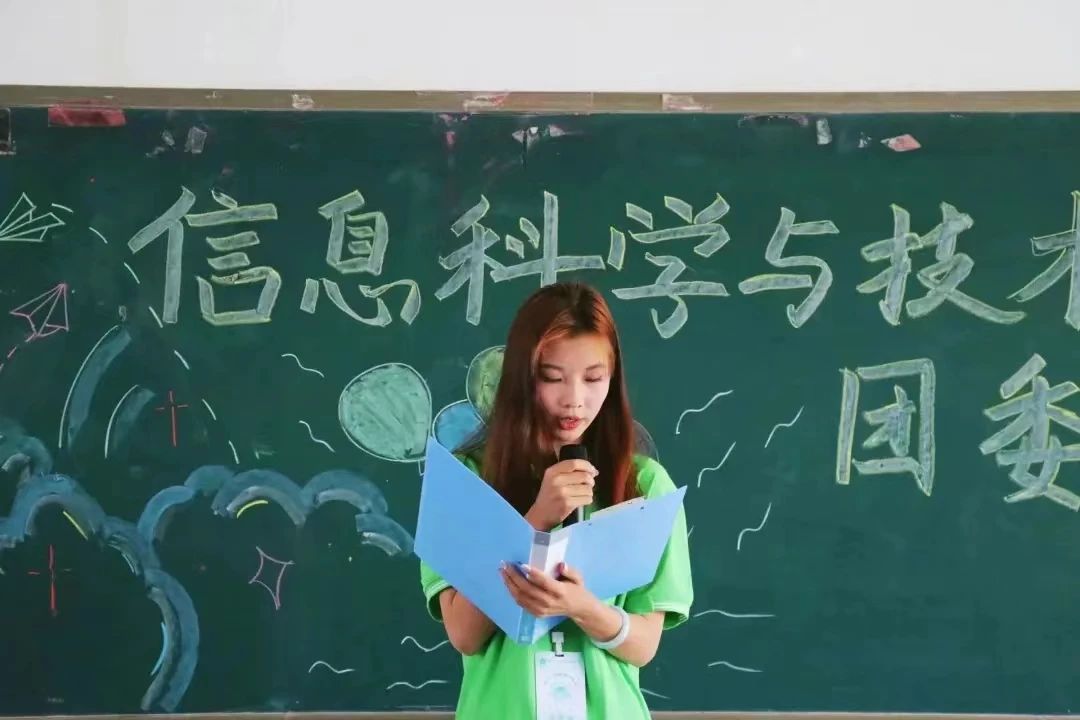 信息科学与技术
团委